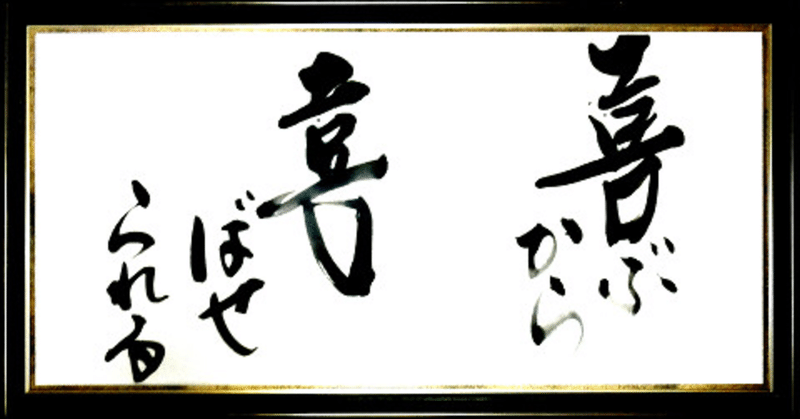 喜ぶ
から
喜
ばせ
られる